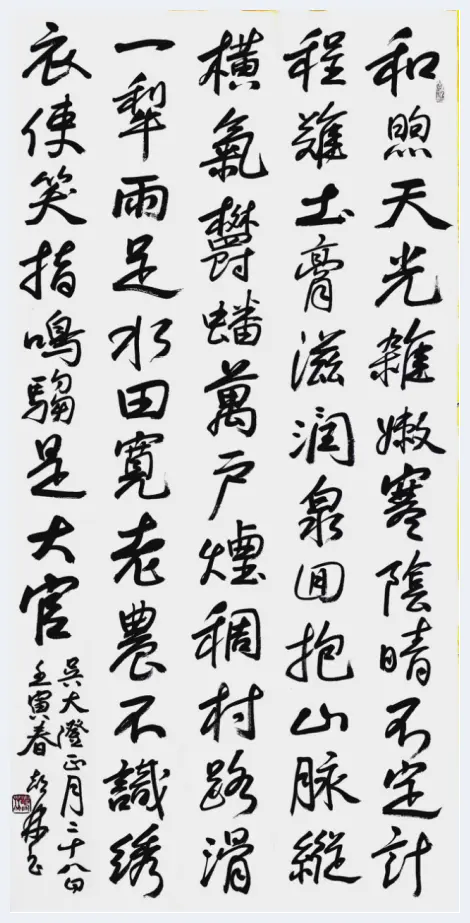 和煦天光雜嫩寒陰晴不定計
程難土膏滋润泉囬抱山脈縱
橫氣欝蟠萬戶煙稠村路滑
一犂雨足水田寬老農不識綉
衣使笑指鳴騶是大官
吳大澄正月二十八日
壬寅春